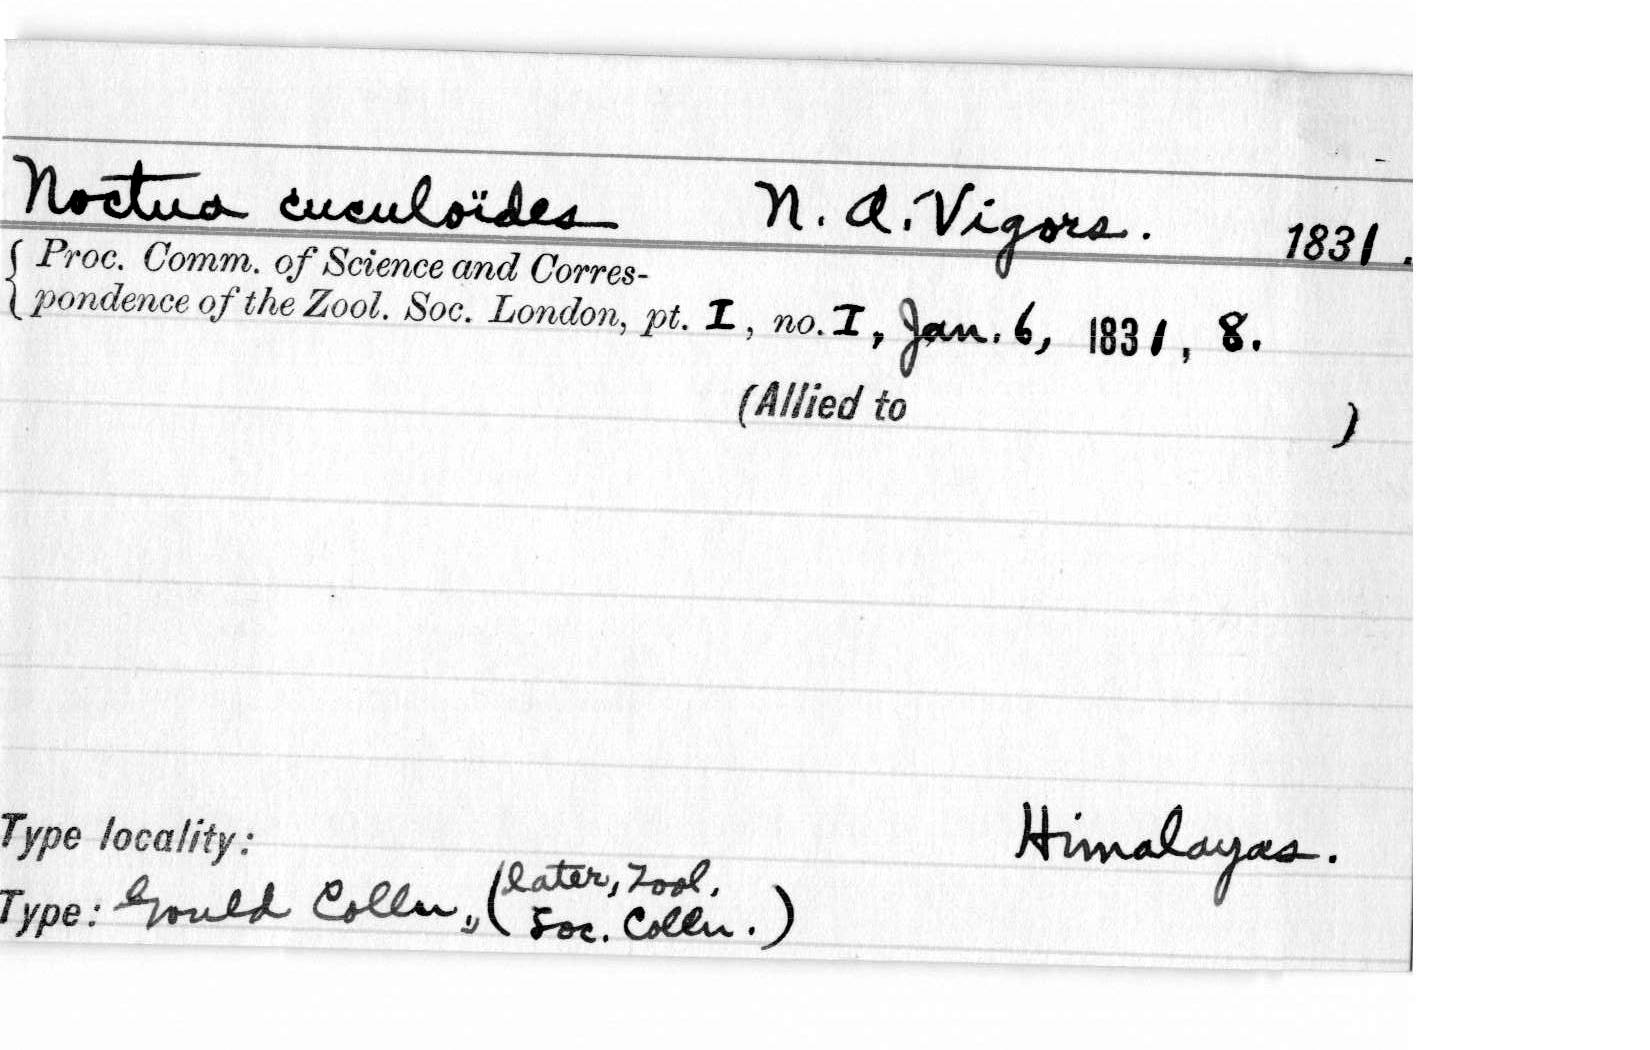 Noctua cuculoïdes N. A. Vigors. 1831.
{ Proc. Comm. of Science and Corres-
pondence of the Zool. Soc. London, pt. I, no. I, Jan. 6, 1831, 8.
(Allied to )
Type locality: Himalayas.
Type: Gould Colln., (later, Zool.
Soc. Colln.)